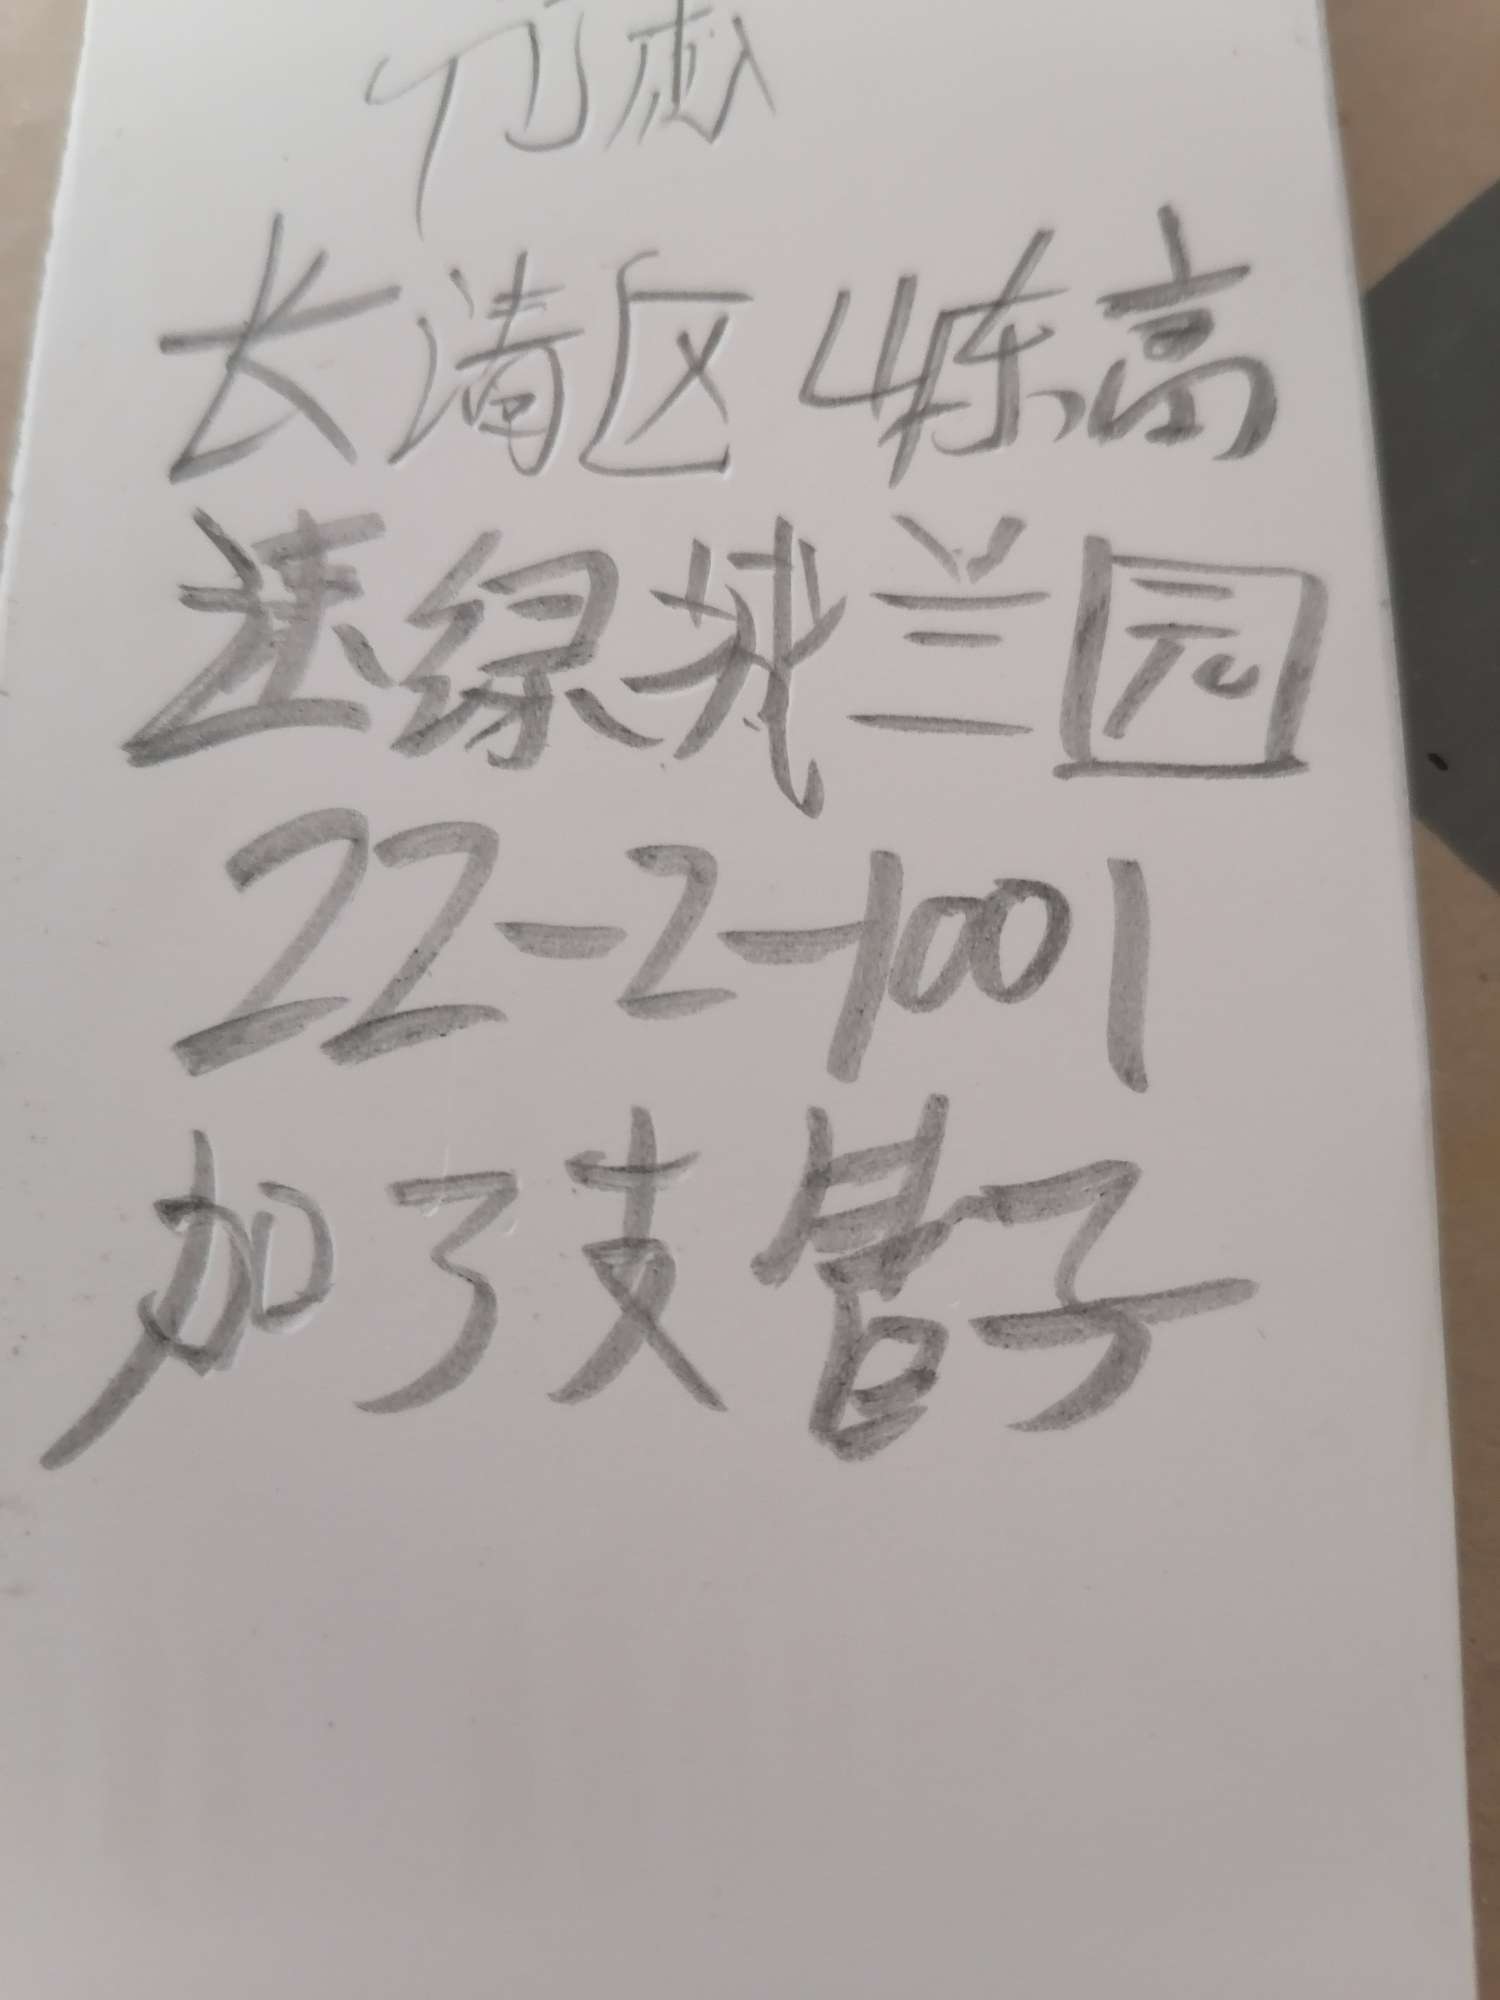 长清区山东高
速绿城兰园
22-2-1001
加了支管子